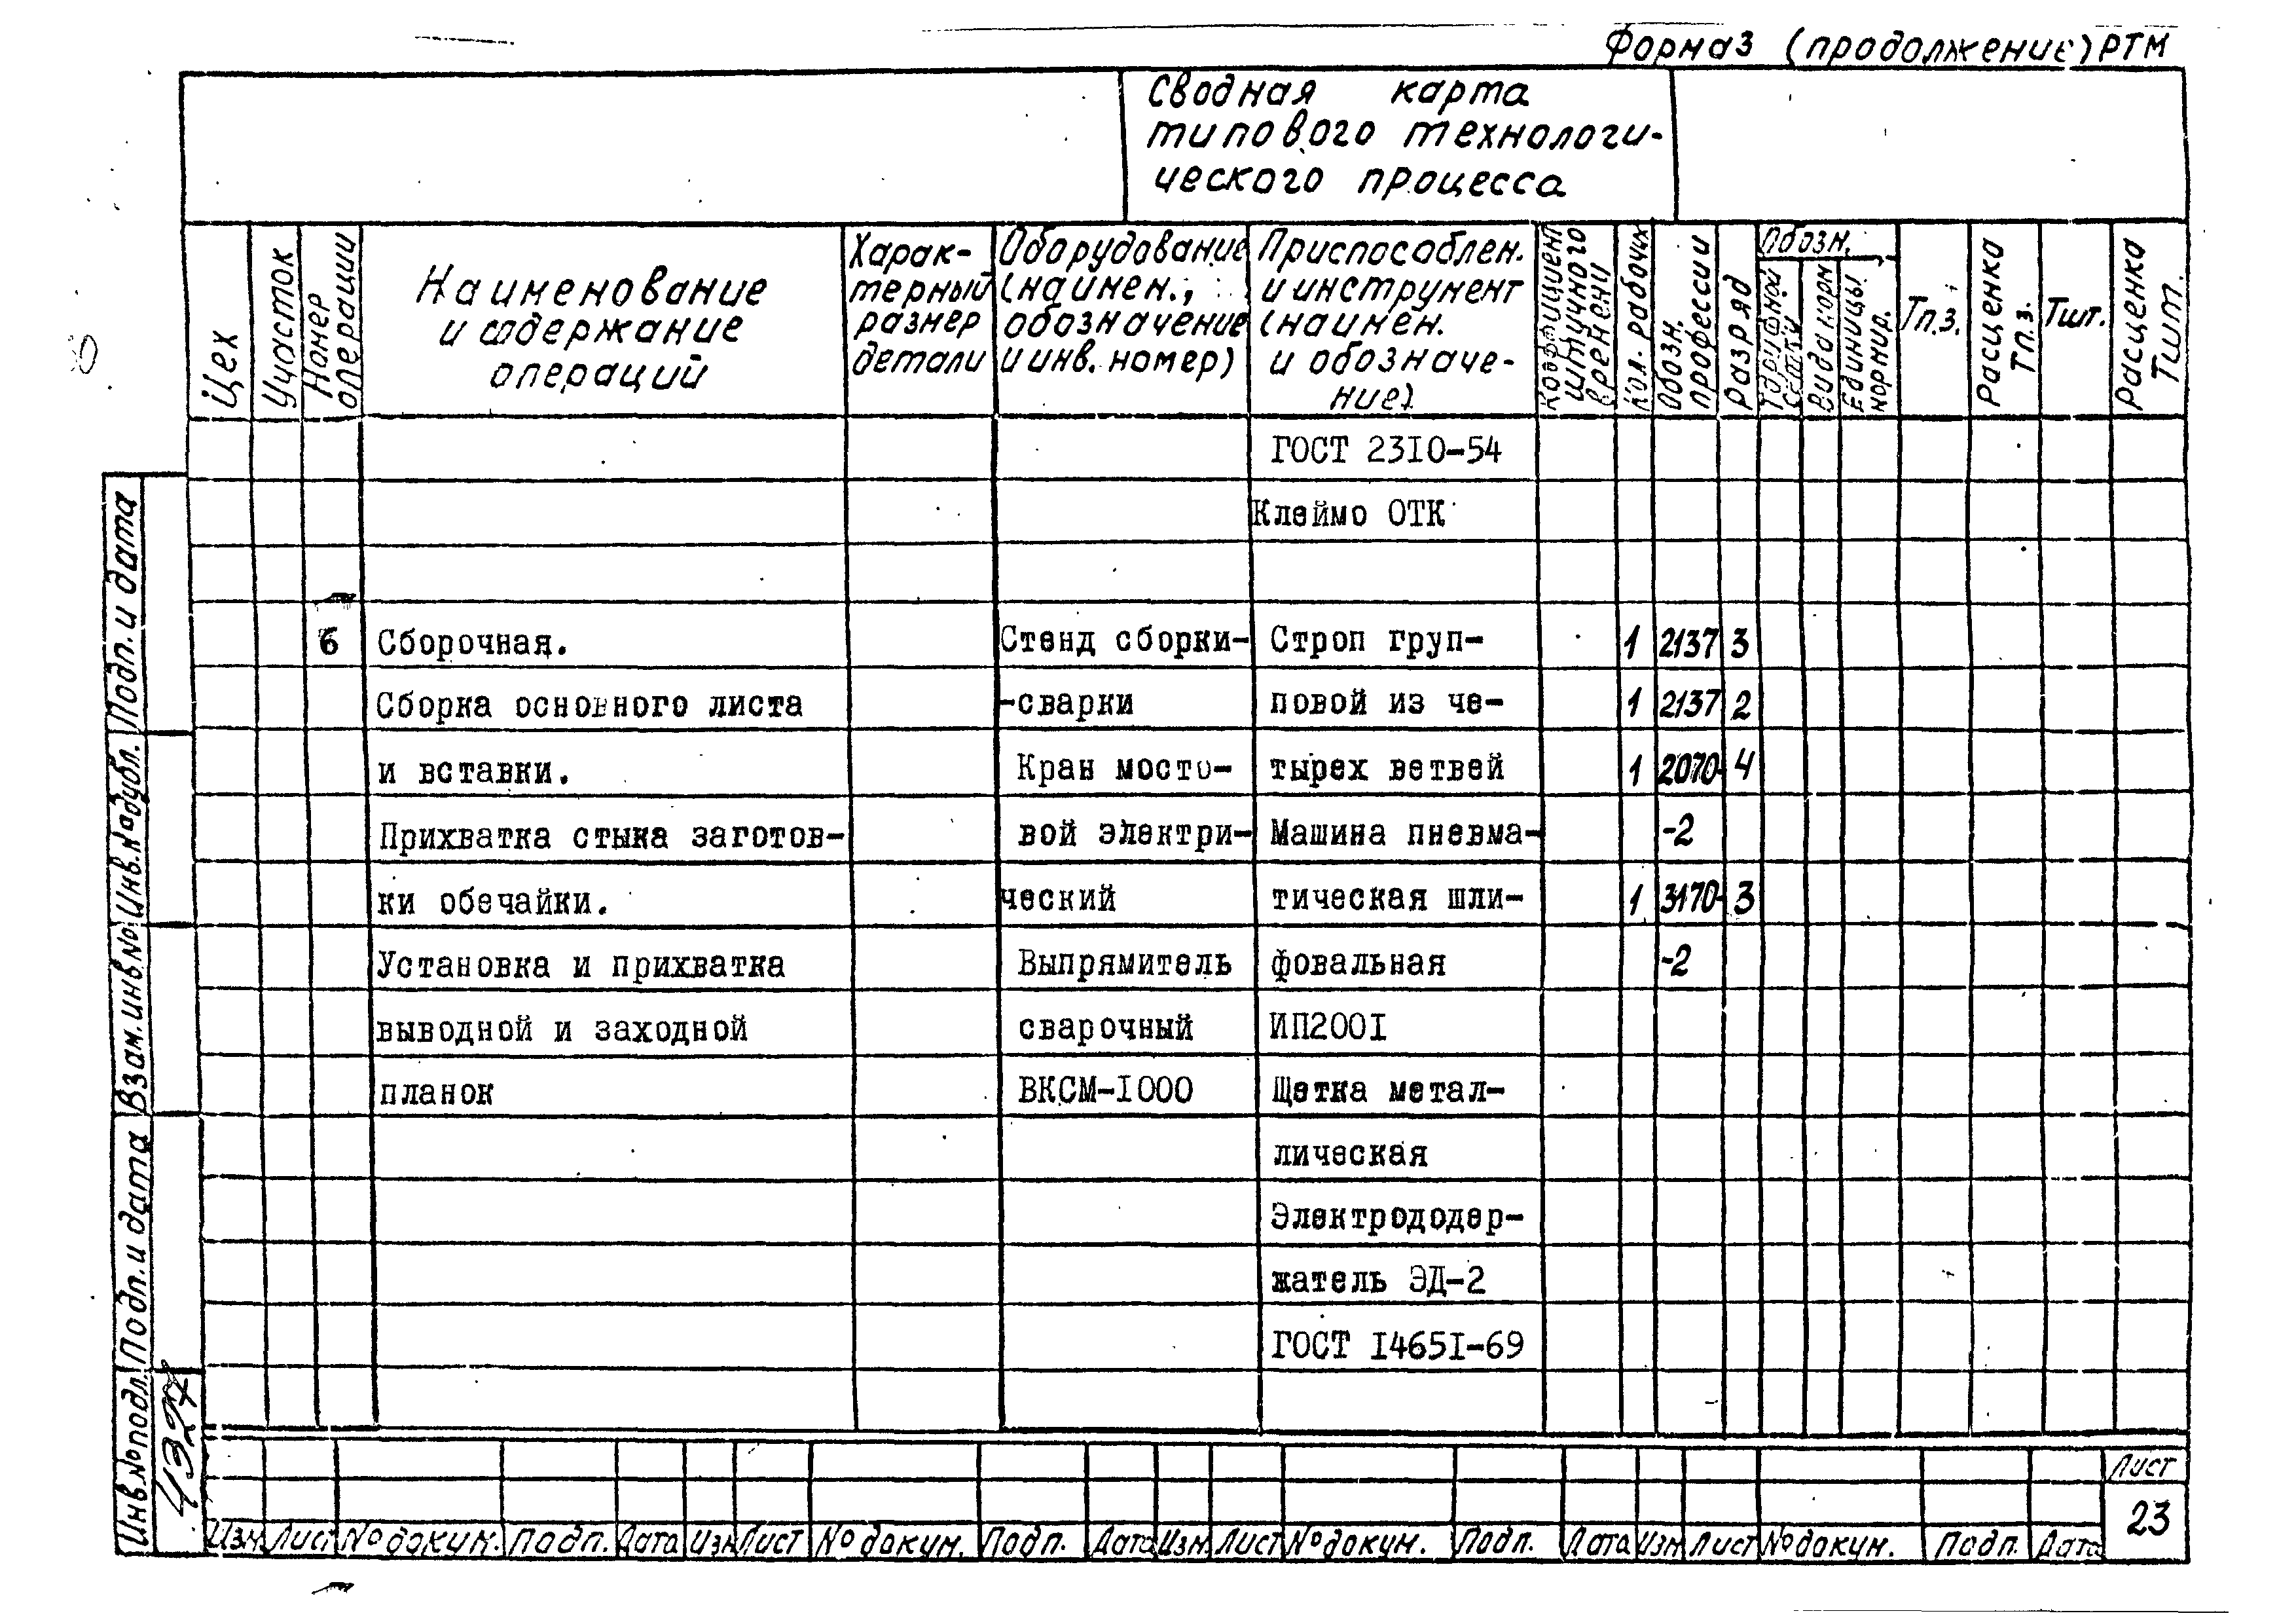 Форма3 (продолжение) РТМ
Сводная карта
типового технологи-
ческого процесса
Цех
Участок
Номер
операции
Наименование
и содержание
операций
Харак-
терный
размер
детали
Оборудование
(наимен.,
обозначение
и инв. номер)
Приспособлен.
и инструмент
(наимен.
и обозначе-
ние)
Коэффициент
штучного
времени
Кол. рабочих
Обозн.
профессии
Разряд
Обозн.
Тарифной
сетки
Вида норм
Единицы
нормир.
Тп.з.
Расценка
Тп.з.
Тшт.
Расценка
Тшт.
ГОСТ 2310-54
Клеймо ОТК
6 Сборочная. Стенд сборки- Строп груп- 1 2137 3
Сборка основного листа -сварки повой из че- 1 2137 2
и вставки. Кран мосто- тырех ветвей 1 2070- 4
Прихватка стыка заготов- вой электри- Машина пневма- -2
ки обечайки. ческий тическая шли- 1 3170- 3
Установка и прихватка Выпрямитель фовальная -2
выводной и заходной сварочный ИП2001
планок ВКСМ-1000 Щетка метал-
лическая
Электрододер-
жатель ЭД-2
ГОСТ 14651-69
Подп. и дата
Инв.№дубл.
Взам.инв.№
Подп. и дата
Инв.№подл.
4327
Лист
23
Изм Лист №докум. Подп. Дата Изм Лист №докум. Подп. Дата Изм. Лист №докум. Подп. Дата Изм Лист №докум. Подп. Дата